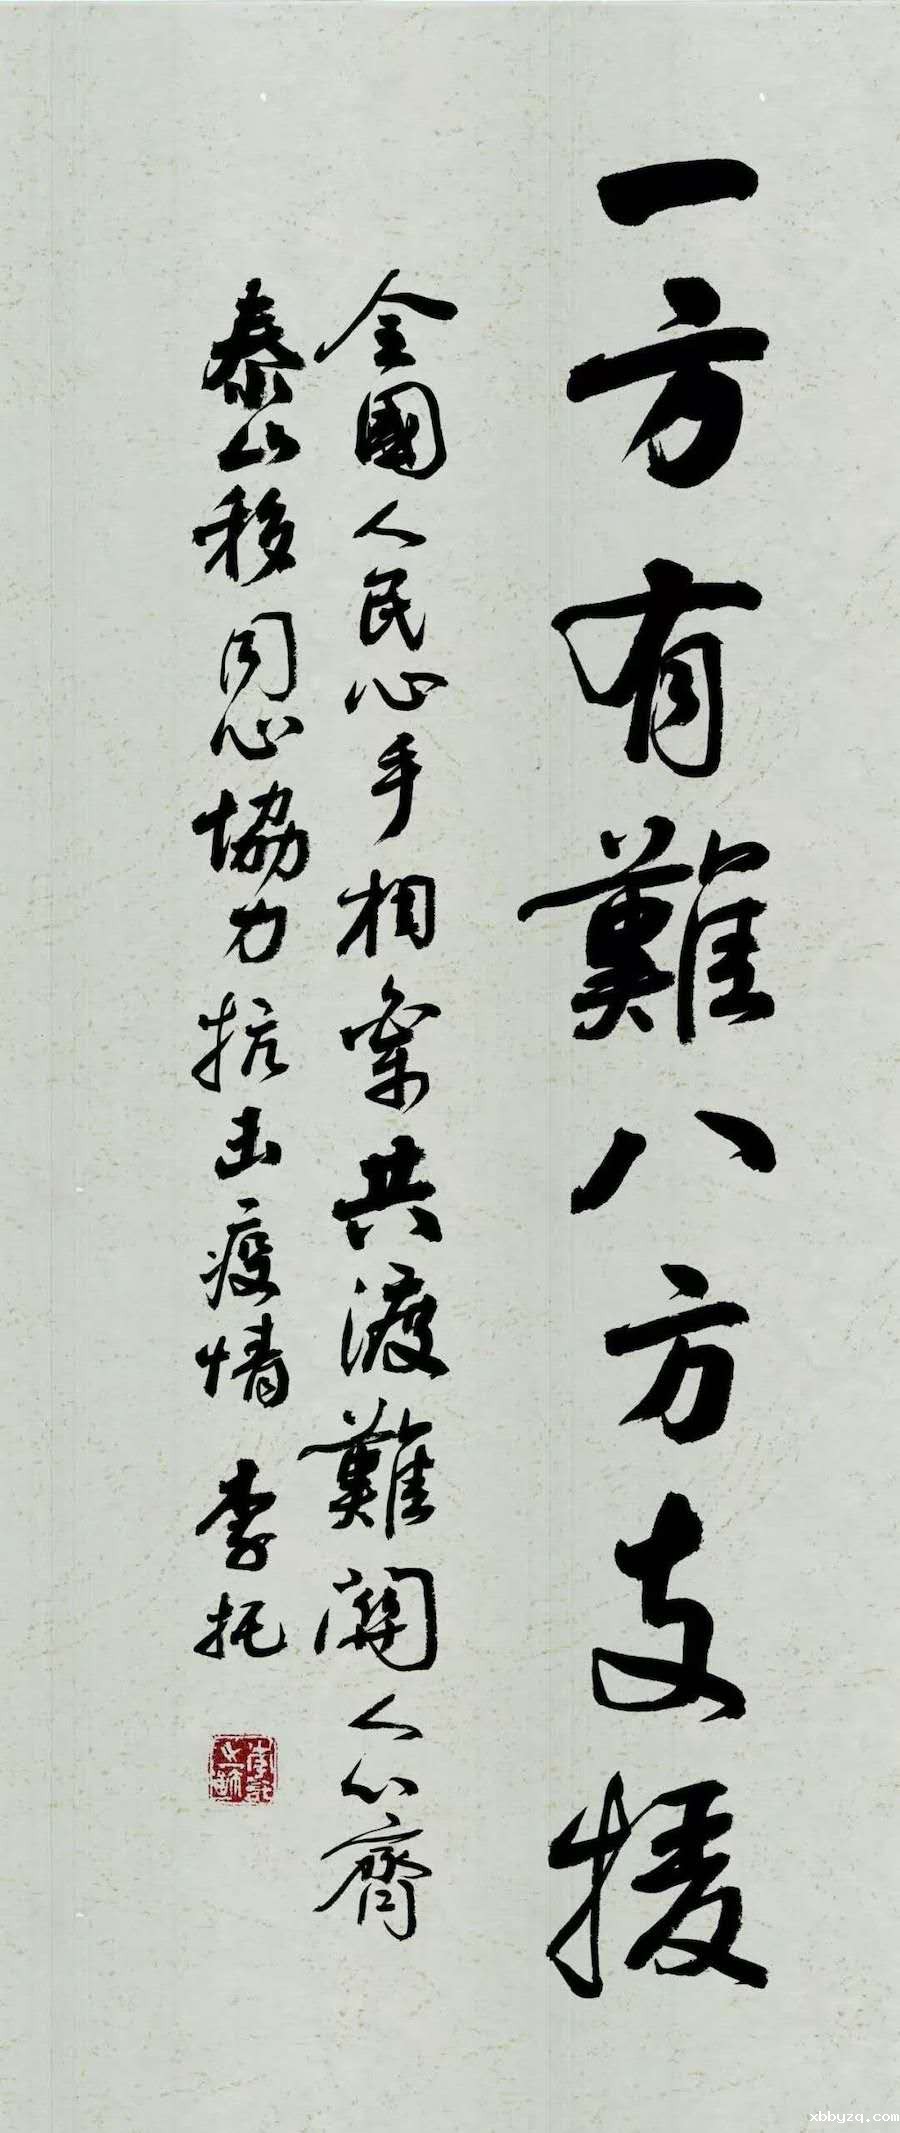 一方有難八方支援
全國人民心手相牽共渡難關人心齊
泰山移同心協力抗击疫情 李托
xbbyzq.com